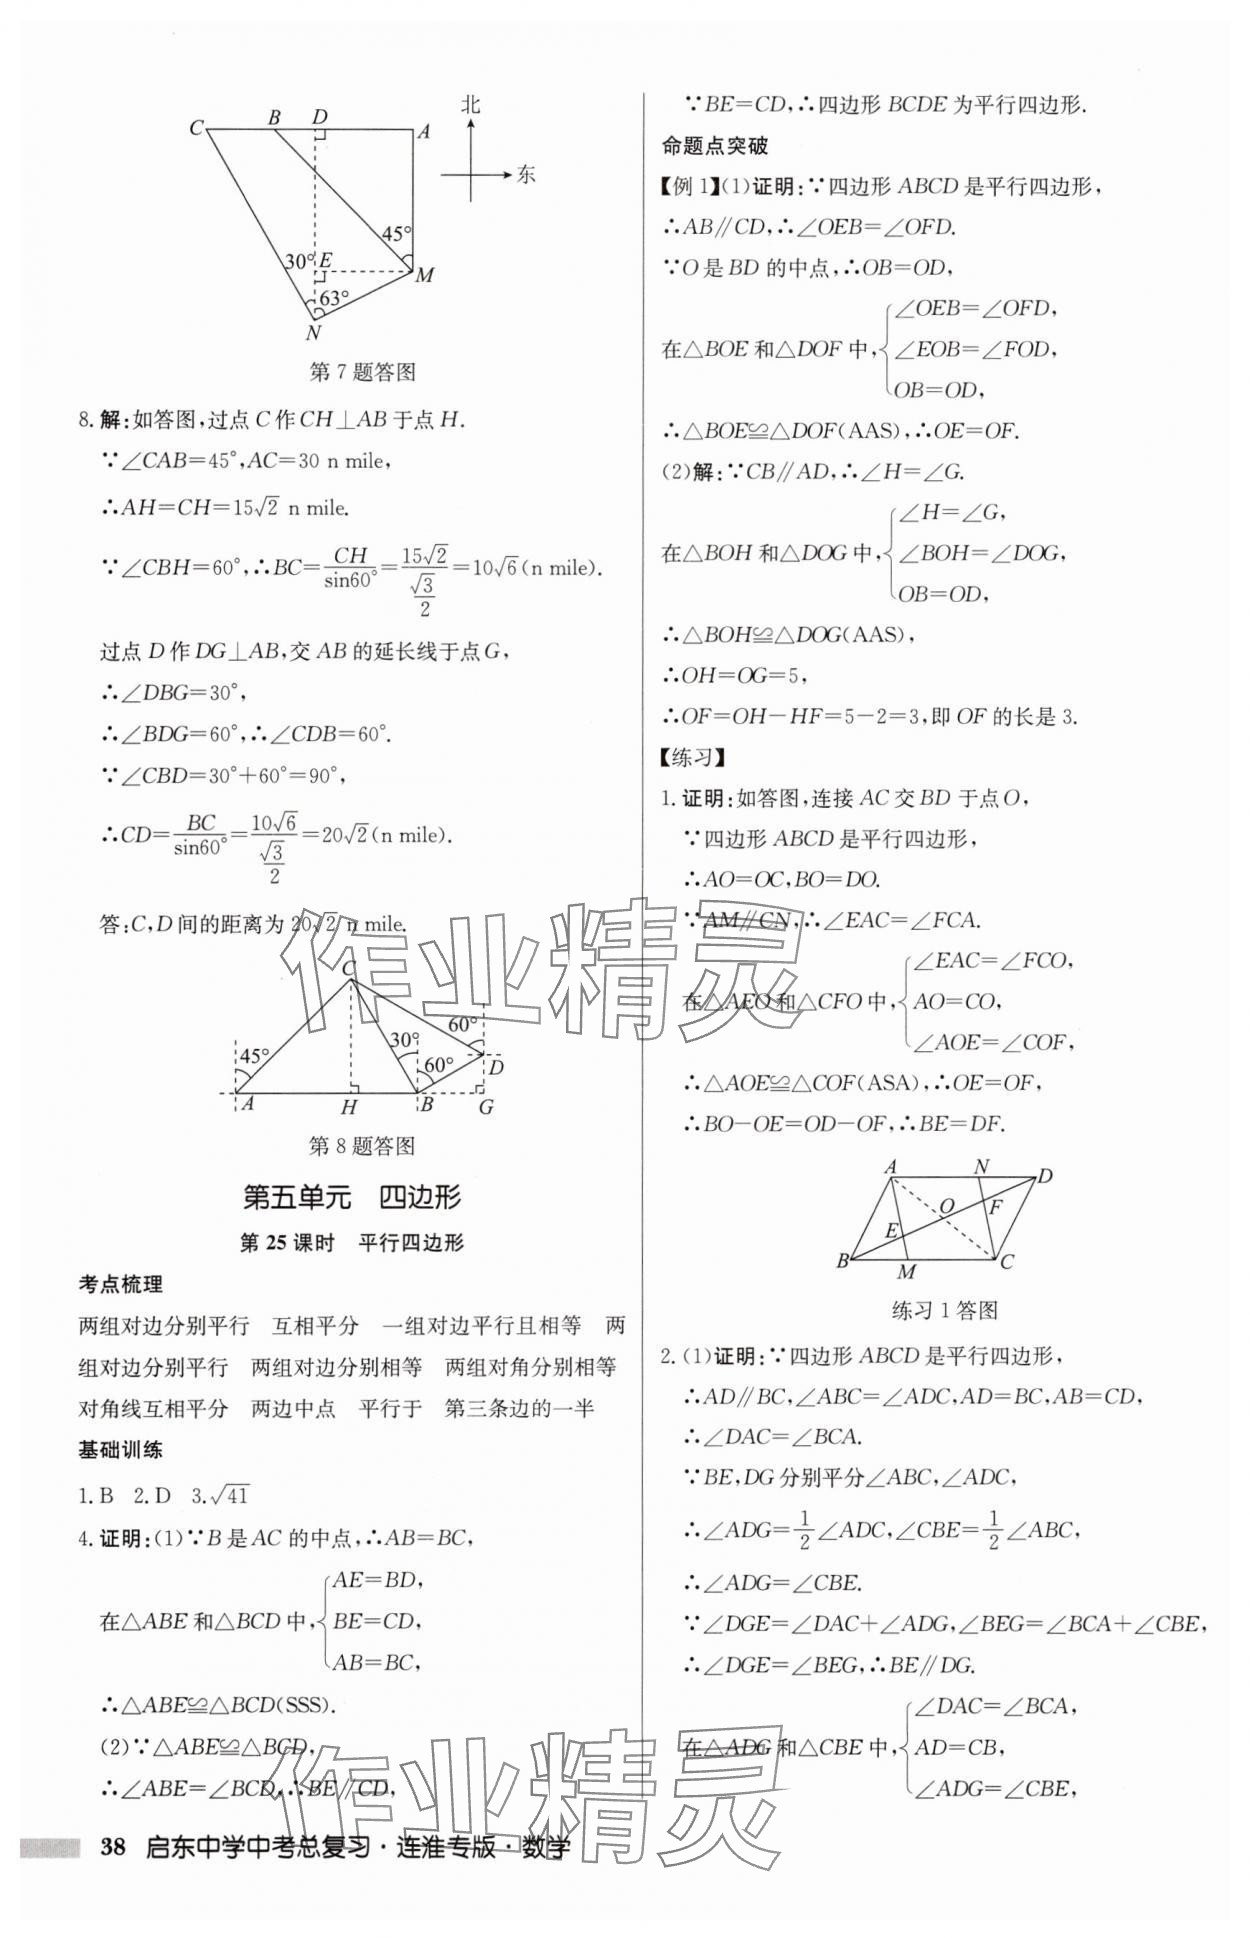 C B D A
北
东
45°
30° E
M
63°
N
第 7 题答图
8. 解:如答图,过点 C 作 CH⊥AB 于点 H.
∵∠CAB=45°,AC=30 n mile,
∴AH=CH=15√2 n mile.
∵∠CBH=60°,∴BC=CH/sin60°=15√2/(√3/2)=10√6(n mile).
过点 D 作 DG⊥AB,交 AB 的延长线于点 G,
∴∠DBG=30°,
∴∠BDG=60°,∴∠CDB=60°.
∵∠CBD=30°+60°=90°,
∴CD=BC/sin60°=10√6/(√3/2)=20√2(n mile).
答:C,D 间的距离为 20√2 n mile.
C
60°
45°
30°
60°
D
A H B G
第 8 题答图
第五单元 四边形
第 25 课时 平行四边形
考点梳理
两组对边分别平行 互相平分 一组对边平行且相等 两
组对边分别平行 两组对边分别相等 两组对角分别相等
对角线互相平分 两边中点 平行于 第三条边的一半
基础训练
1. B 2. D 3. √41
4. 证明:(1)∵B 是 AC 的中点,∴AB=BC,
在△ABE 和△BCD 中,{AE=BD,
BE=CD,
AB=BC,
∴△ABE≌△BCD(SSS).
(2)∵△ABE≌△BCD,
∴∠ABE=∠BCD,∴BE∥CD,
∵BE=CD,∴四边形 BCDE 为平行四边形.
命题点突破
【例 1】(1)证明:∵四边形 ABCD 是平行四边形,
∴AB∥CD,∴∠OEB=∠OFD.
∵O 是 BD 的中点,∴OB=OD,
在△BOE 和△DOF 中,{∠OEB=∠OFD,
∠EOB=∠FOD,
OB=OD,
∴△BOE≌△DOF(AAS),∴OE=OF.
(2)解:∵CB∥AD,∴∠H=∠G.
在△BOH 和△DOG 中,{∠H=∠G,
∠BOH=∠DOG,
OB=OD,
∴△BOH≌△DOG(AAS),
∴OH=OG=5,
∴OF=OH-HF=5-2=3,即 OF 的长是 3.
【练习】
1. 证明:如答图,连接 AC 交 BD 于点 O,
∵四边形 ABCD 是平行四边形,
∴AO=OC,BO=DO.
∵AM∥CN,∴∠EAC=∠FCA.
在△AEO 和△CFO 中,{∠EAC=∠FCO,
AO=CO,
∠AOE=∠COF,
∴△AOE≌△COF(ASA),∴OE=OF,
∴BO-OE=OD-OF,∴BE=DF.
A N D
O F
E
B M C
练习 1 答图
2. (1)证明:∵四边形 ABCD 是平行四边形,
∴AD∥BC,∠ABC=∠ADC,AD=BC,AB=CD,
∴∠DAC=∠BCA.
∵BE,DG 分别平分∠ABC,∠ADC,
∴∠ADG=1/2∠ADC,∠CBE=1/2∠ABC,
∴∠ADG=∠CBE.
∵∠DGE=∠DAC+∠ADG,∠BEG=∠BCA+∠CBE,
∴∠DGE=∠BEG,∴BE∥DG.
在△ADG 和△CBE 中,{∠DAC=∠BCA,
AD=CB,
∠ADG=∠CBE,
作业精灵
作业精灵
38 启东中学中考总复习·连淮专版·数学